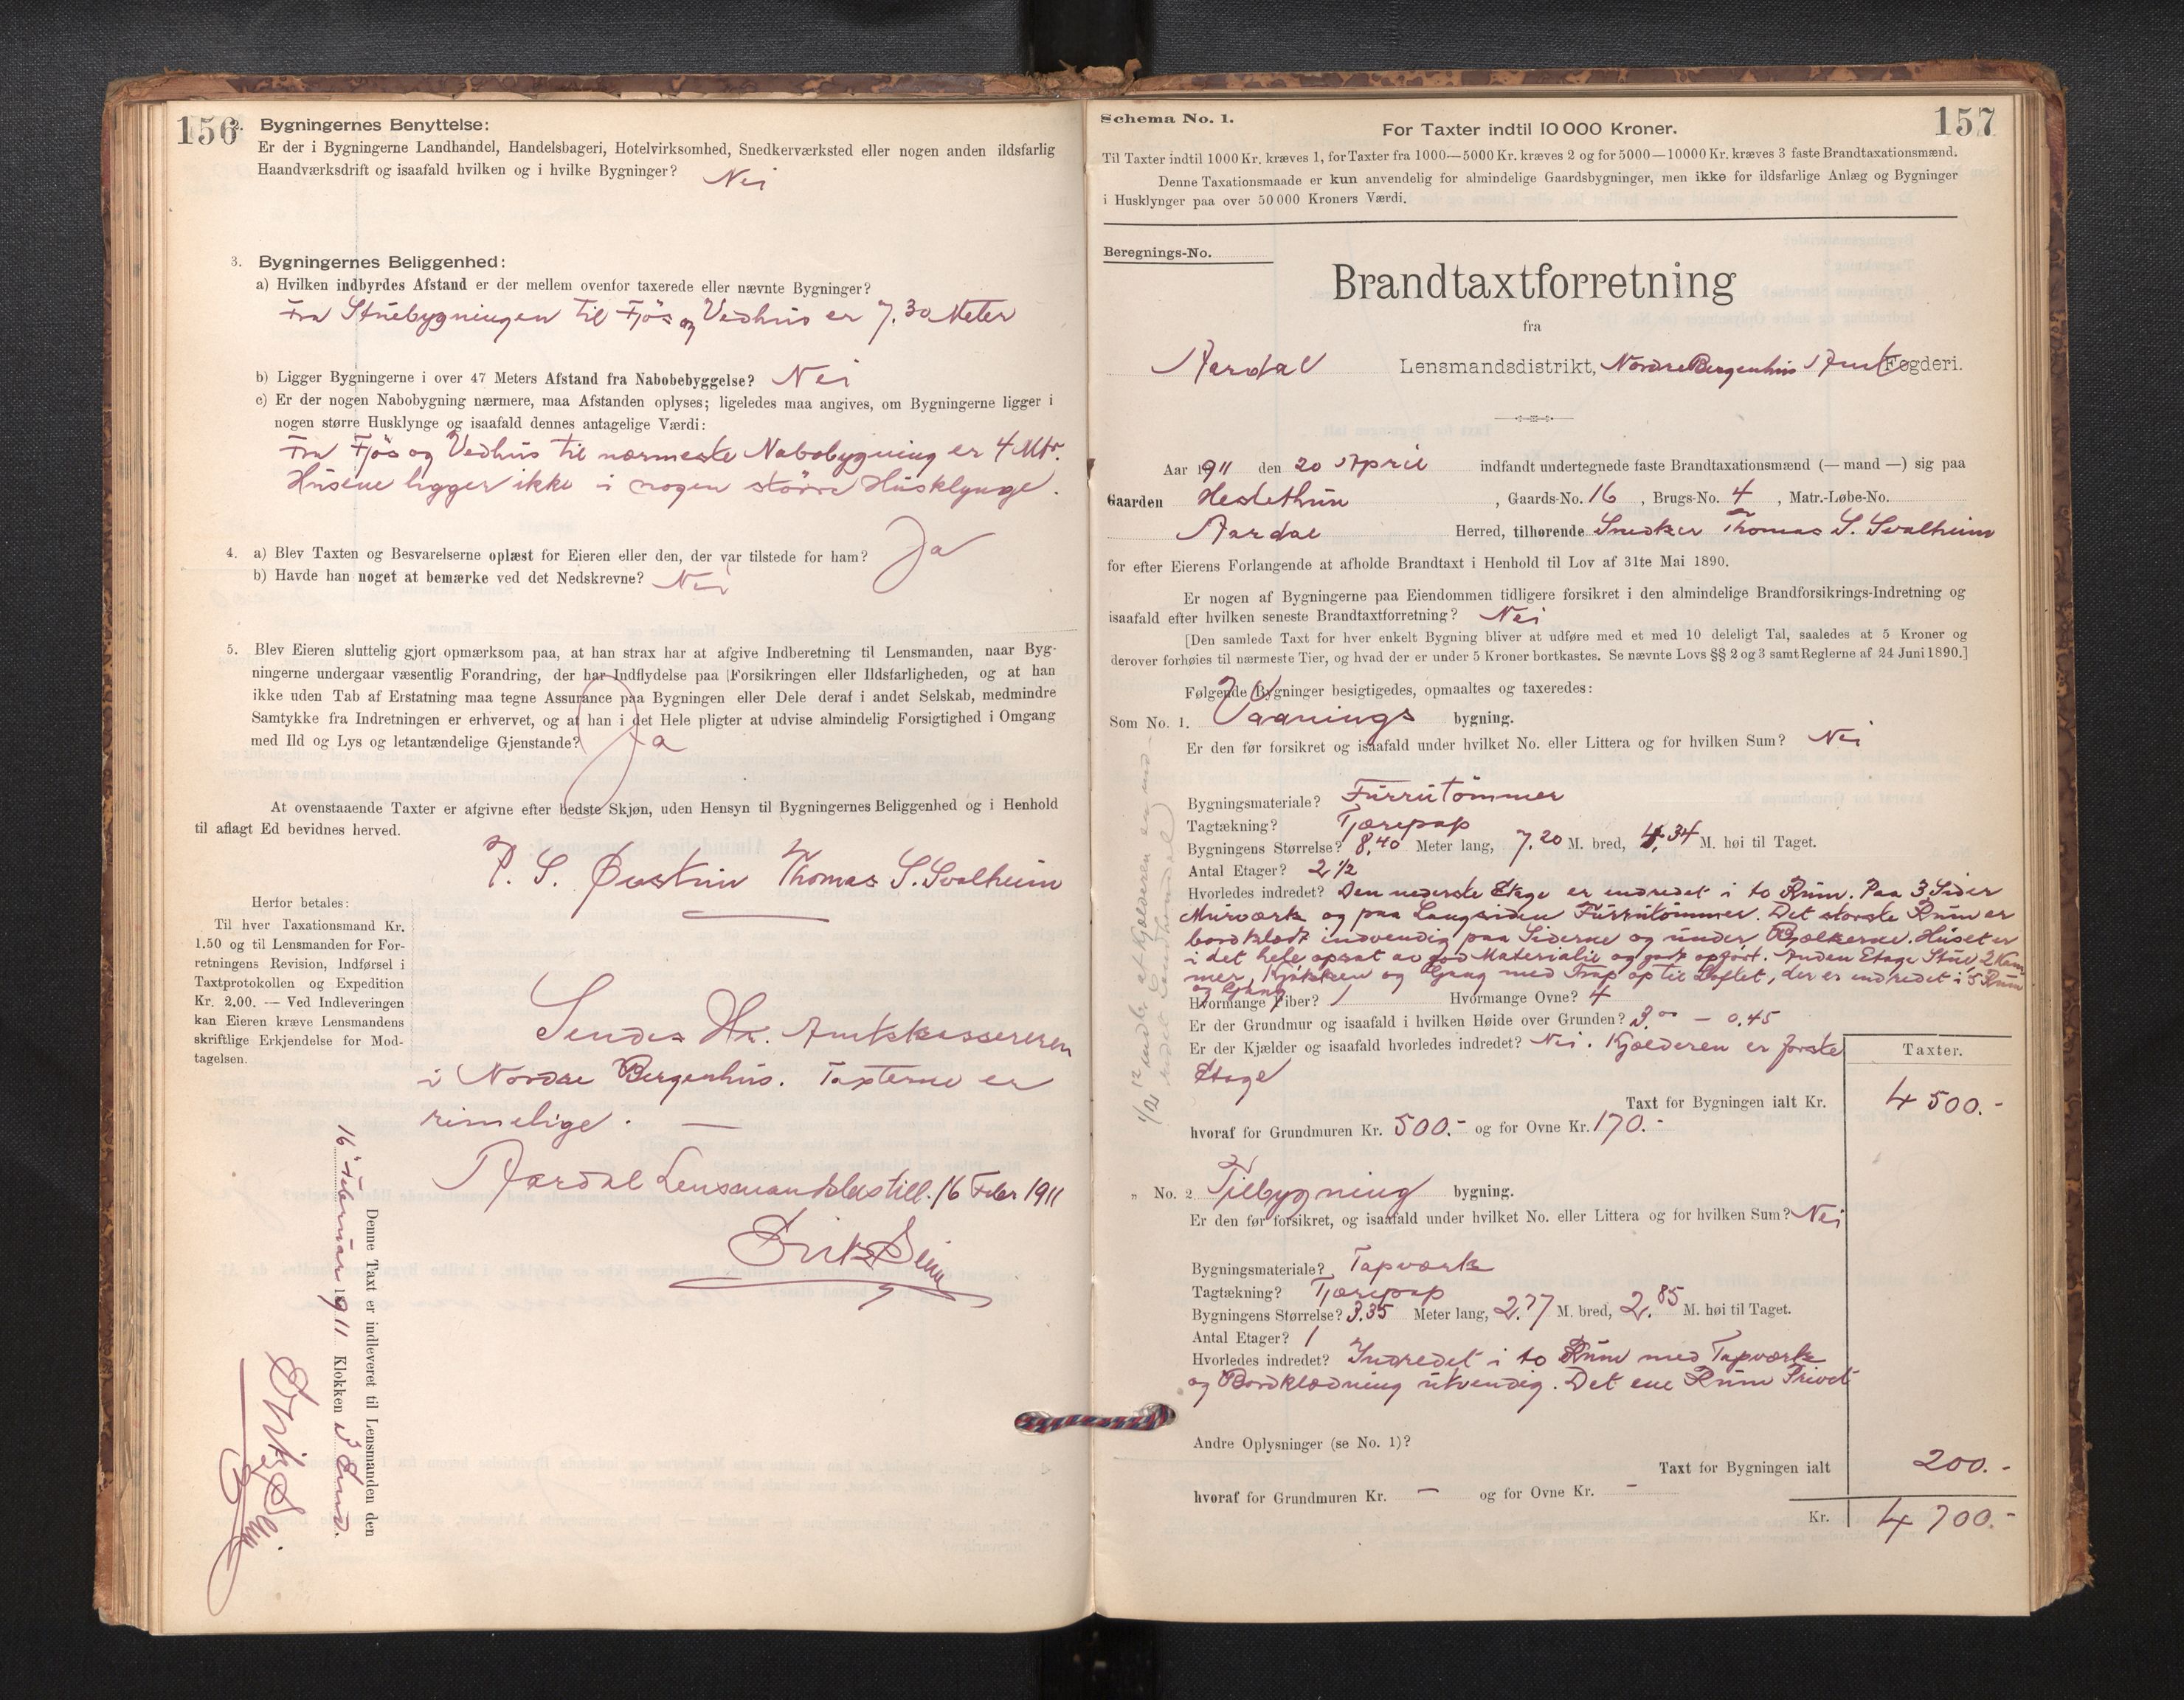 156
2. Bygningernes Benyttelse:
Er der i Bygningerne Landhandel, Handelsbageri, Hotelvirksomhed, Snedkerværksted eller nogen anden ildsfarlig
Haandværksdrift og isaafald hvilken og i hvilke Bygninger? Nei
3. Bygningernes Beliggenhed:
a) Hvilken indbyrdes Afstand er der mellem ovenfor taxerede eller nævnte Bygninger?
Fra Stuebygningen til Fjös og Vedhus er 7.30 Meter
b) Ligger Bygningerne i over 47 Meters Afstand fra Nabobebyggelse? Nei
c) Er der nogen Nabobygning nærmere, maa Afstanden oplyses; ligeledes maa angives, om Bygningerne ligger i
nogen større Husklynge og isaafald dennes antagelige Værdi:
Fra Fjös og Vedhus til nærmeste Nabobygning er 4 Mtr.
Husene ligger ikke i nogen større Husklynge.
4. a) Blev Taxten og Besvarelserne oplæst for Eieren eller den, der var tilstede for ham? Ja
b) Havde han noget at bemærke ved det Nedskrevne? Nei
5. Blev Eieren sluttelig gjort opmærksom paa, at han strax har at afgive Indberetning til Lensmanden, naar Byg-
ningerne undergaar væsentlig Forandring, der har Indflydelse paa Forsikringen eller Ildsfarligheden, og at han
ikke uden Tab af Erstatning maa tegne Assurance paa Bygningen eller Dele deraf i andet Selskab, medmindre
Samtykke fra Indretningen er erhvervet, og at han i det Hele pligter at udvise almindelig Forsigtighed i Omgang
med Ild og Lys og letantændelige Gjenstande? Ja
At ovenstaaende Taxter er afgivne efter bedste Skjøn, uden Hensyn til Bygningernes Beliggenhed og i Henhold
til aflagt Ed bevidnes herved.
P. S. Øvstun Thomas S. Svalheim
Herfor betales:
Til hver Taxationsmand Kr.
1.50 og til Lensmanden for For-
retningens Revision, Indførsel i
Taxtprotokollen og Expedition
Kr. 2.00. — Ved Indleveringen
kan Eieren kræve Lensmandens
skriftlige Erkjendelse for Mod-
tagelsen.
Sendes Hr. Amtskassereren
i Nordre Bergenhus. Taxterne er
rimelige. —
Aardal Lensmandsbestill. 16 Febr 1911
Denne Taxt er indleveret til Lensmanden den
16 Februar 1911 Klokken 3 Emd.
Schema No. 1.
For Taxter indtil 10 000 Kroner.
157
Til Taxter indtil 1000 Kr. kræves 1, for Taxter fra 1000—5000 Kr. kræves 2 og for 5000—10000 Kr. kræves 3 faste Brandtaxationsmænd.
Denne Taxationsmaade er kun anvendelig for almindelige Gaardsbygninger, men ikke for ildsfarlige Anlæg og Bygninger
i Husklynger paa over 50 000 Kroners Værdi.
Beregnings-No.
Brandtaxtforretning
fra
Aardal Lensmandsdistrikt, Nordre Bergenhus Amt Fogderi.
Aar 1911 den 20 April indfandt undertegnede faste Brandtaxationsmænd (— mand —) sig paa
Gaarden Hestethun, Gaards-No. 16, Brugs-No. 4, Matr.-Løbe-No.
Aardal Herred, tilhørende Snedker Thomas S. Svalheim
for efter Eierens Forlangende at afholde Brandtaxt i Henhold til Lov af 31te Mai 1890.
Er nogen af Bygningerne paa Eiendommen tidligere forsikret i den almindelige Brandforsikrings-Indretning og
isaafald efter hvilken seneste Brandtaxtforretning? Nei
[Den samlede Taxt for hver enkelt Bygning bliver at udføre med et med 10 deleligt Tal, saaledes at 5 Kroner og
derover forhøies til nærmeste Tier, og hvad der er under 5 Kroner bortkastes. Se nævnte Lovs §§ 2 og 3 samt Reglerne af 24 Juni 1890.]
Følgende Bygninger besigtigedes, opmaaltes og taxeredes:
Som No. 1. Vaanings bygning.
Er den før forsikret og isaafald under hvilket No. eller Littera og for hvilken Sum? Nei
Bygningsmateriale? Furrutömmer
Tagtækning? Tjærepap
Bygningens Størrelse? 8,40 Meter lang, 7.20 M. bred, 4.34 M. høi til Taget.
Antal Etager? 2 1/2
Hvorledes indredet? Den nederste Etage er indredet i to Rum. Paa 3 Sider
Murværk og paa Langsiden Furrutömmer. Det störste Rum er
bordklædt indvendig paa Siderne og under Bjælkerne. Huset er
i det hele opsat av god Materialie og godt opfört. Anden Etage Stue, 2 Kam
mer, Kjökken og Gang med Trap op til Loftet, der er indredet i 5 Rum
og Gang
Hvormange Piber? 1 Hvormange Ovne? 4
Er der Grundmur og isaafald i hvilken Høide over Grunden? 3.00 — 0.45
Er der Kjælder og isaafald hvorledes indredet? Nei. Kjælderen er förste
Etage
Taxter.
Taxt for Bygningen ialt Kr. 4 500.-
hvoraf for Grundmuren Kr. 500.- og for Ovne Kr. 170.-
„ No. 2 Tilbygning bygning.
Er den før forsikret, og isaafald under hvilket No. eller Littera og for hvilken Sum? Nei
Bygningsmateriale? Tapværk
Tagtækning? Tjærepap
Bygningens Størrelse? 3.35 Meter lang, 2.77 M. bred, 2.85 M. høi til Taget.
Antal Etager? 1
Hvorledes indredet? Indredet i to Rum med Tapværk
og Bordklædning utvendig. Det ene Rum Privet
Andre Oplysninger (se No. 1)?
Taxt for Bygningen ialt 200.-
hvoraf for Grundmuren Kr. — og for Ovne Kr. —
Kr. 4 700.-